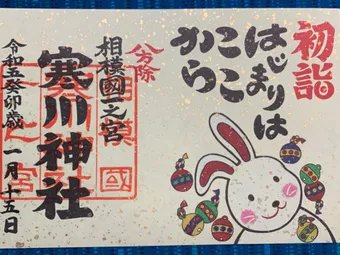 初詣
はじまりは
ここ
から
八方除
相模國一之宮
寒川神社
令和五癸卯歳 一月十五日
相模國
一之宮